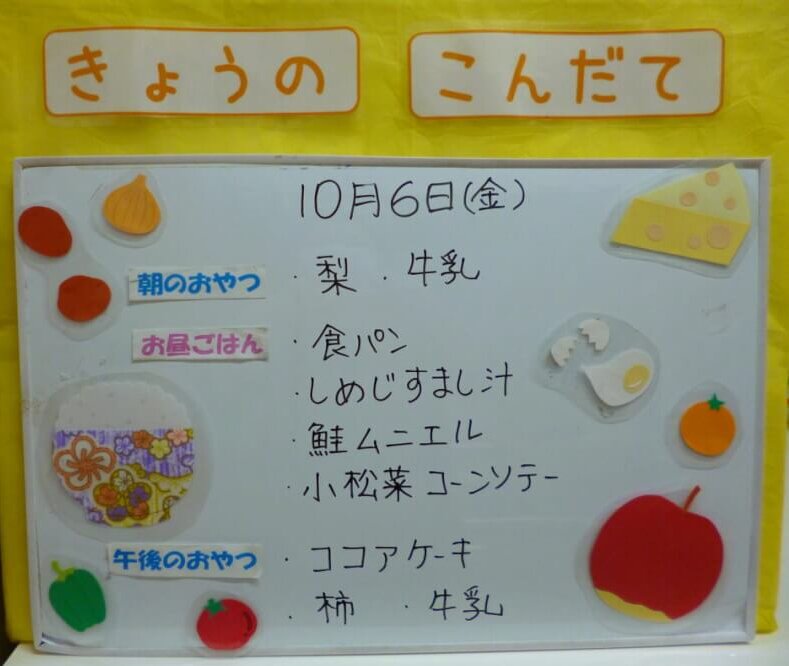 きょうの こんだて
10月6日(金)
朝のおやつ ・梨 ・牛乳
お昼ごはん ・食パン
・しめじすまし汁
・鮭ムニエル
・小松菜コーンソテー
午後のおやつ ・ココアケーキ
・柿 ・牛乳